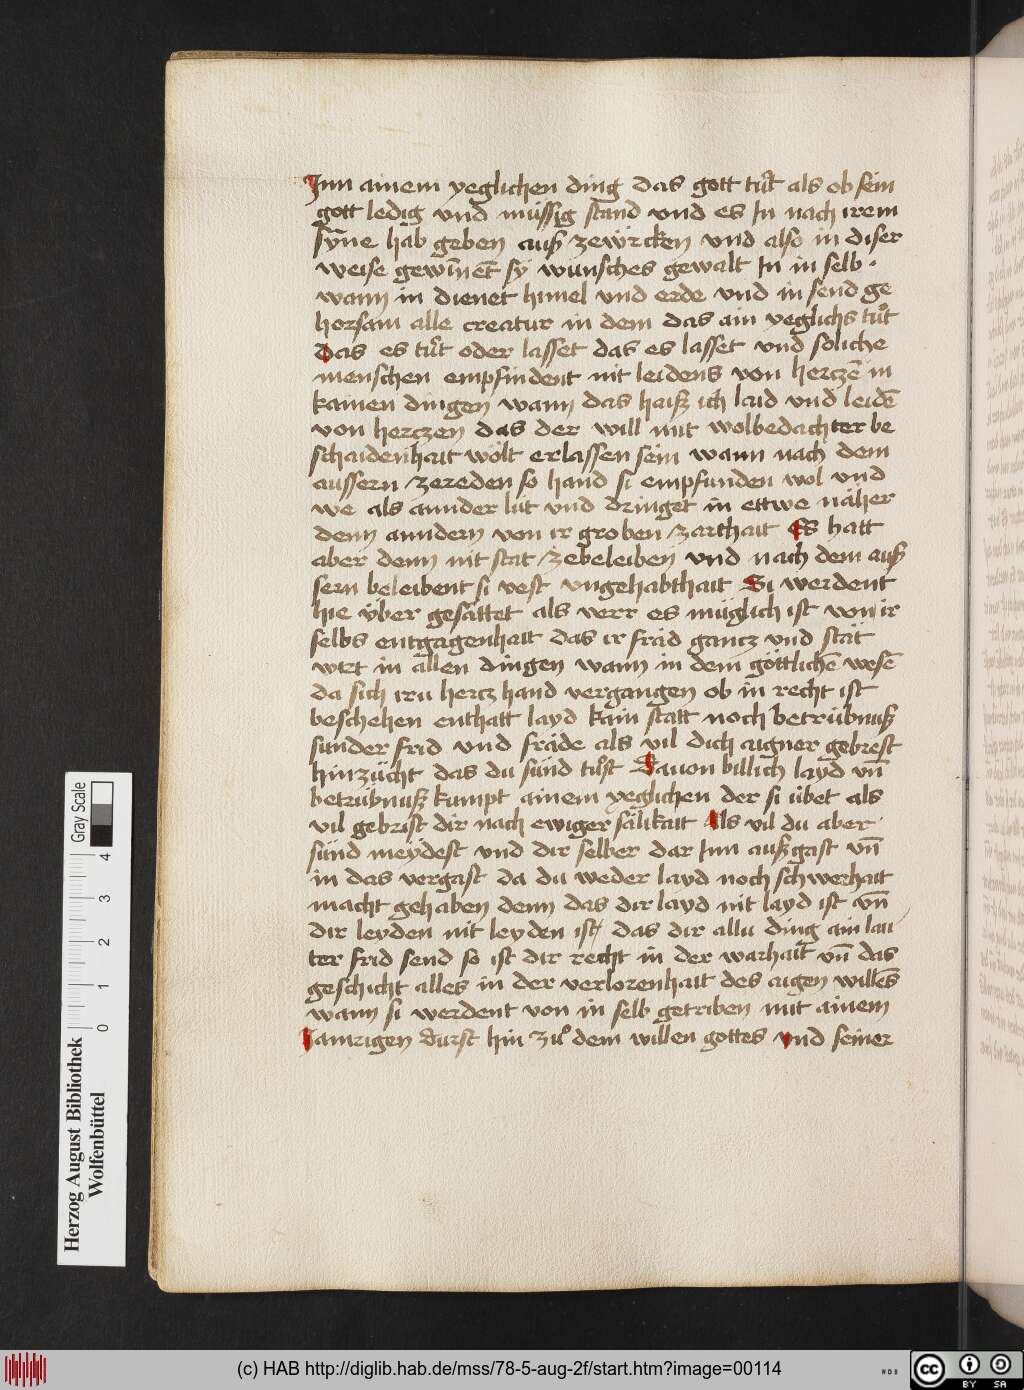 Jnn ainem yeglichen ding das gott tuͦt als ob sein
gott ledig vnd müssig stand vnd es Jn nach irem
syne hab geben auß zewürcken vnd also in diser
weise gewinēt sy wunsches gewalt Jn in selb ·
wann in dienet himel vnd erde vnd in send ge
horsam alle creatur in dem das ain yeglichs tuͦt
das es tuͦt oder lasset das es lasset vnd soliche
menschen empfindent nit leidens von herczē in
kainen dingen wann das haiß ich laid vnd leidē
von herczen das der will mit wolbedachter be
schaidenhait wölt erlassen sein wann nach dem
aussern zereden so hand si empfunden wol vnd
we als annder lüt vnd dringet in ettwe näher
denn anndern von ir groben zarthait Es hatt
aber denn nit stat zebeleiben vnd nach dem auß
sern beleibent si vest vngehabthait Si werdent
hie über gesättet als verr es müglich ist von ir
selbs entgagenhait das ir fräd gancz vnd stät
wirt in allen dingen wann in dem göttlichē wesē
da sich iru hercz hand vergangen ob in recht ist
beschehen enthatt layd kain statt noch betrübnuß
sunder frid vnd fräde als vil dich aigner gebrest
hinzücht das du sünd tuͦst Dauon billich layd vn̄
betrübnuß kumpt ainem yeglichen der si übet als
vil gebrist dir nach ewiger sälikait Als vil du aber
sünd meydest vnd dir selber dar Jnn außgast vn̄
in das vergast da du weder layd noch schwerhait
macht gehaben denn das dir layd nit layd ist vn̄
dir leyden nit leyden ist das dir allu ding ain lau
ter frid send so ist dir recht in der warhait vn̄ das
geschicht alles in der verlorenhait des aigen willēs
wann si werdent von in selb getriben mit ainem
Jamrigen durst hin zuͦ dem willen gottes vnd seiner
Herzog August Bibliothek
Wolfenbüttel
Gray Scale
0 1 2 3 4
(c) HAB http://diglib.hab.de/mss/78-5-aug-2f/start.htm?image=00114
WDB
cc BY SA